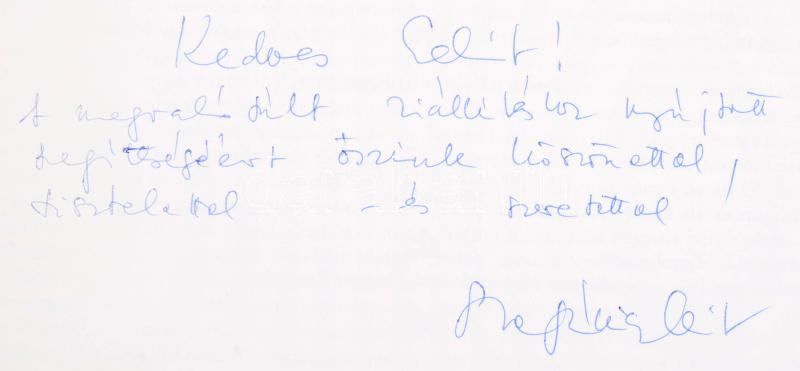 Kedves Edit!
A megvalósult kiállításhoz nyújtott
segítségéért őszinte köszönettel,
tisztelettel - és szeretettel